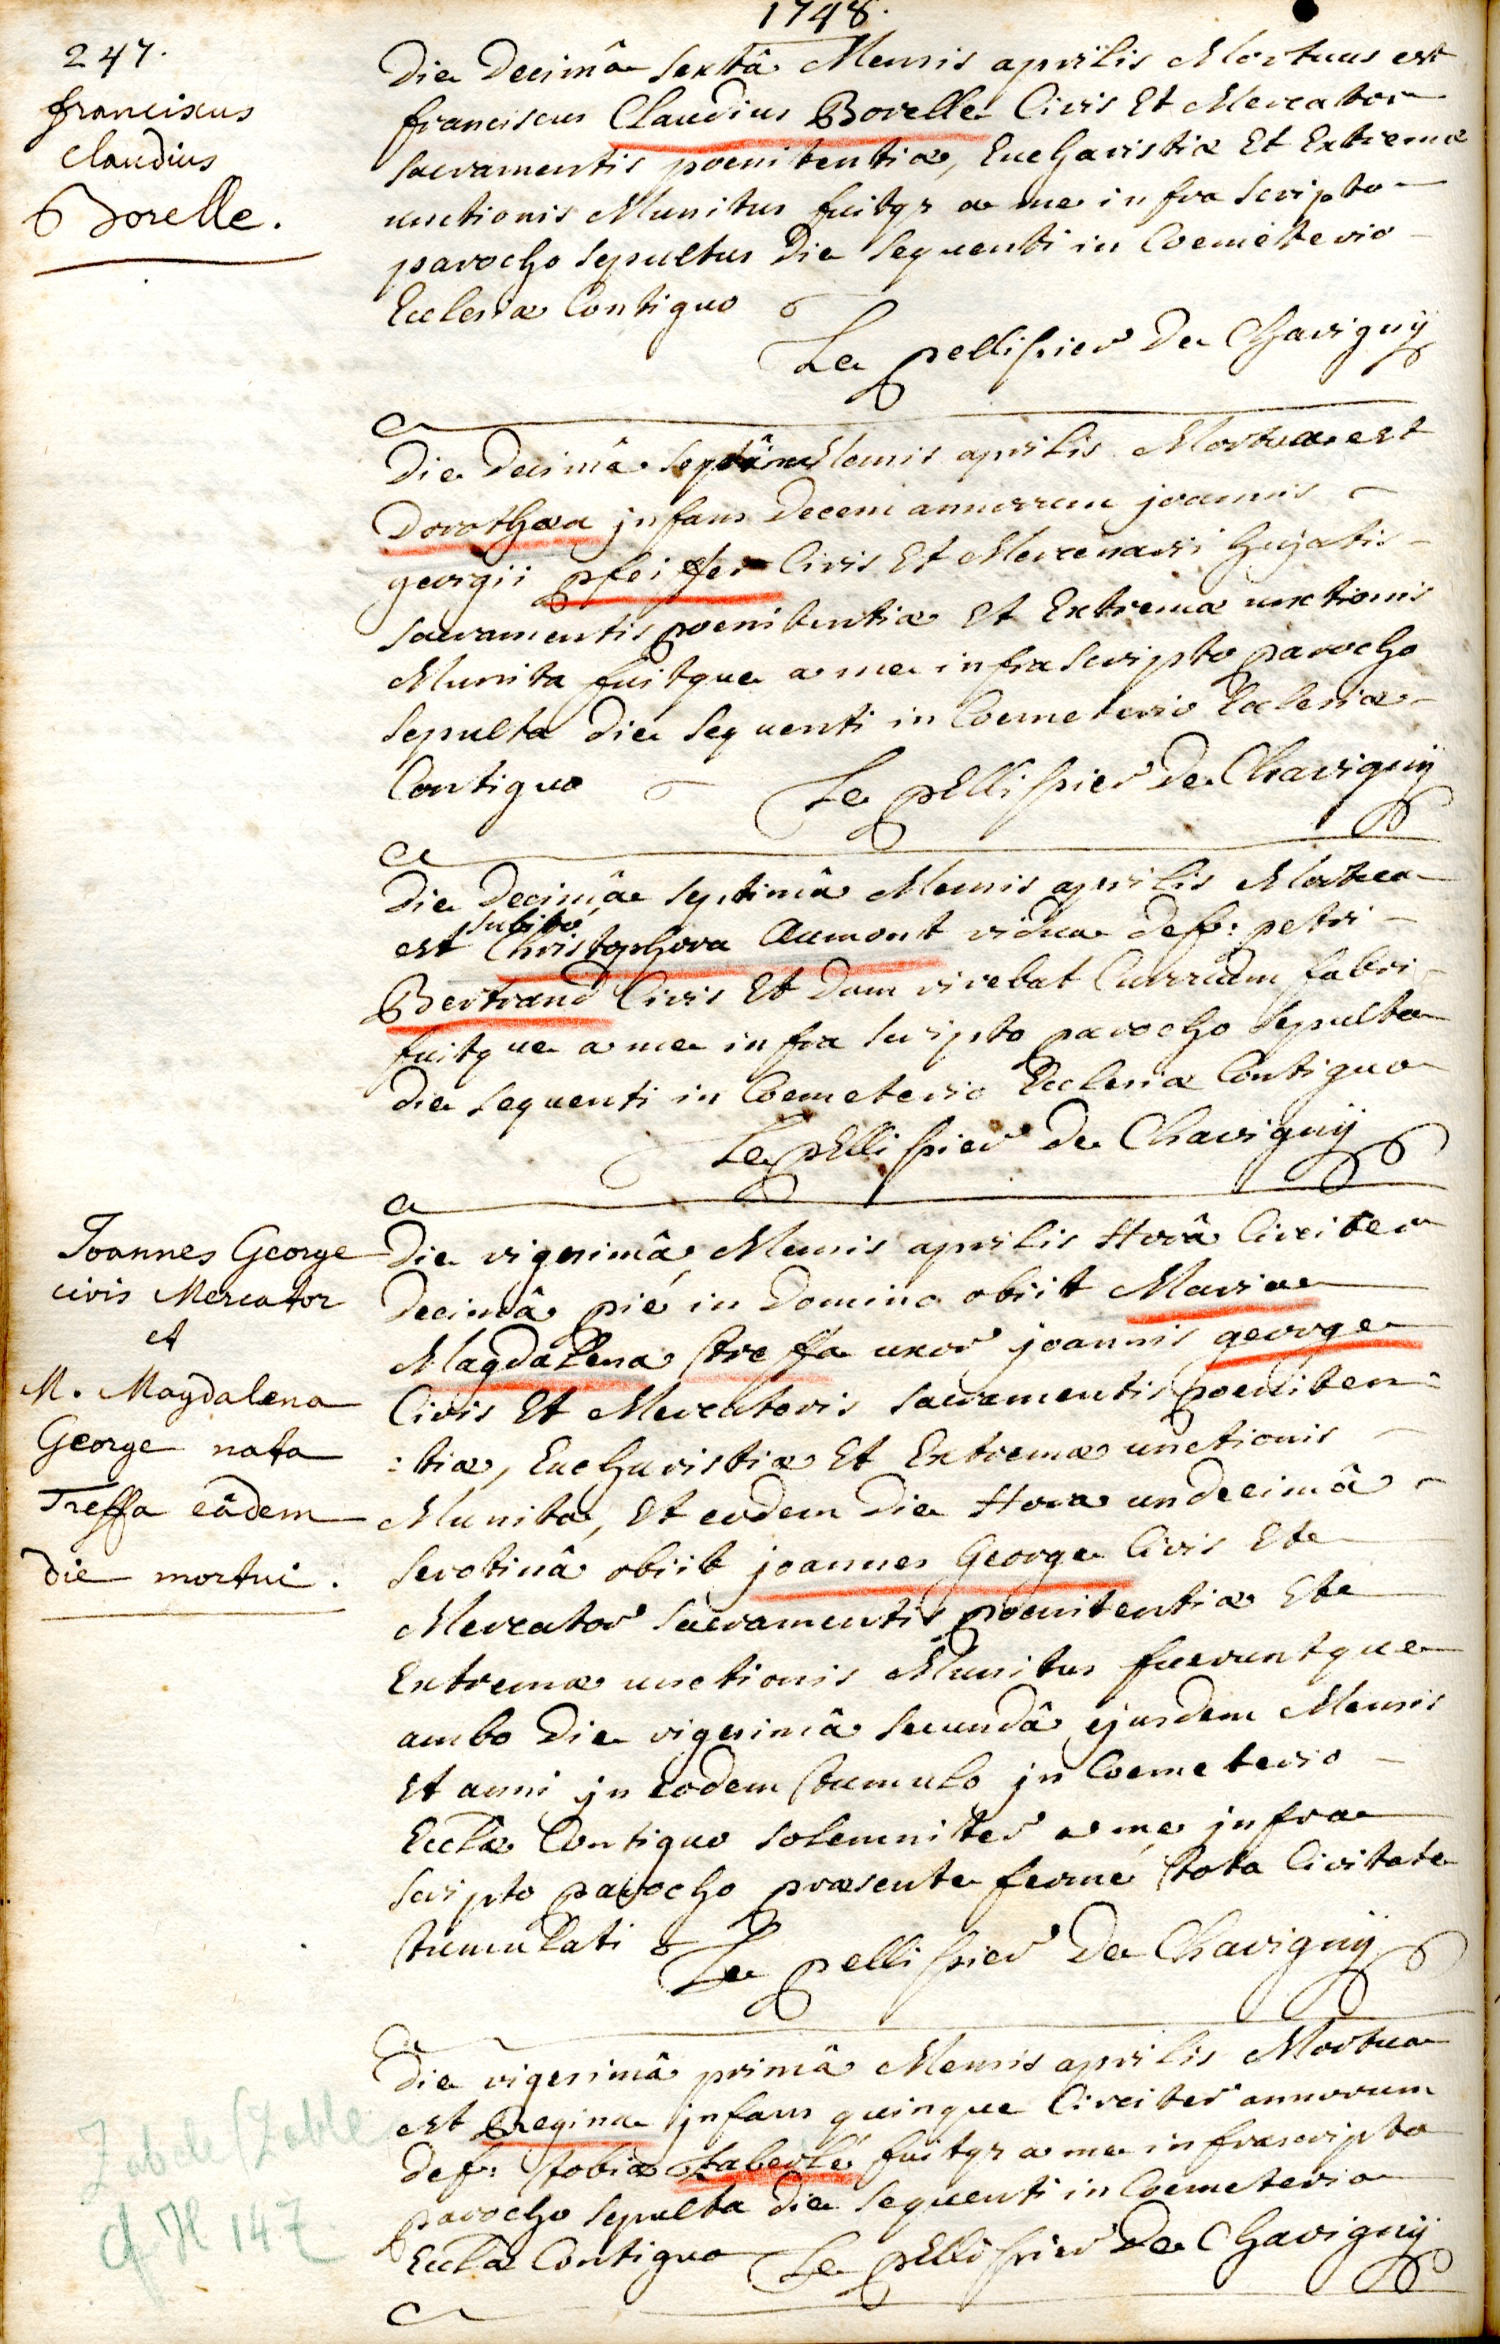 1748.
247.
franciscus
Claudius
Borelle.
Die Decimâ Sextâ Mensis aprilis Mortuus est
franciscus Claudius Borelle Civis Et Mercator
sacramentis poenitentiæ, Eucharistiæ Et Extremæ
unctionis Munitus fuitqz a me infra scripto
parocho sepultus Die sequenti in Coemeterio
Ecclesiæ Contiguo
Le pellissier De Chavignÿ
Die Decimâ septimâ Mensis aprilis Mortua est
Dorothæa jnfans Decem annorum joannis
georgii pfeiffer Civis Et Mercenarii hujatis
sacramentis poenitentiæ Et Extremæ unctionis
Munita fuitque a me infra scripto parocho
sepulta Die sequenti in Coemeterio Ecclesiæ
Contiguo Le pellissier De Chavignÿ
Die Decimâ septimâ Mensis aprilis Mortua
subito
est Christophora Aumont vidua def: petri
Bertrand Civis Et Dum vivebat Curruum fabri
fuitque a me infra scripto parocho sepulta
Die sequenti in Coemeterio Ecclesiæ Contiguo
Le pellissier De Chavignÿ
Joannes George
civis Mercator
et
M. Magdalena
George nata
Treffa eâdem
die mortui.
Die vigesimâ Mensis aprilis Horâ Circiter
Decimâ pié in Domino obiit Maria
Magdalena treffa uxor joannis george
Civis Et Mercatoris sacramentis poeniten:
:tiæ, Eucharistiæ Et Extremæ unctionis
Munita, Et eodem Die Hora undecimâ
serotinâ obiit joannes George Civis Et
Mercator sacramentis poenitentiæ Et
Extremæ unctionis Munitus fueruntque
ambo Die vigesimâ secundâ ejusdem Mensis
Et anni jn eodem tumulo jn Coemeterio
Eccłæ Contiguo solemniter a me jnfra
scripto parocho præsente fermé tota Civitate
tumulati
Le pellissier De Chavignÿ
Die vigesimâ primâ Mensis aprilis Mortua
est Regina jnfans quinque Circiter annorum
def: tobiæ Zaberlé fuitqz a me infrascripto
parocho sepulta Die sequenti in Coemeterio
Eccłæ Contiguo Le pellissier De Chavignÿ
cf H 147